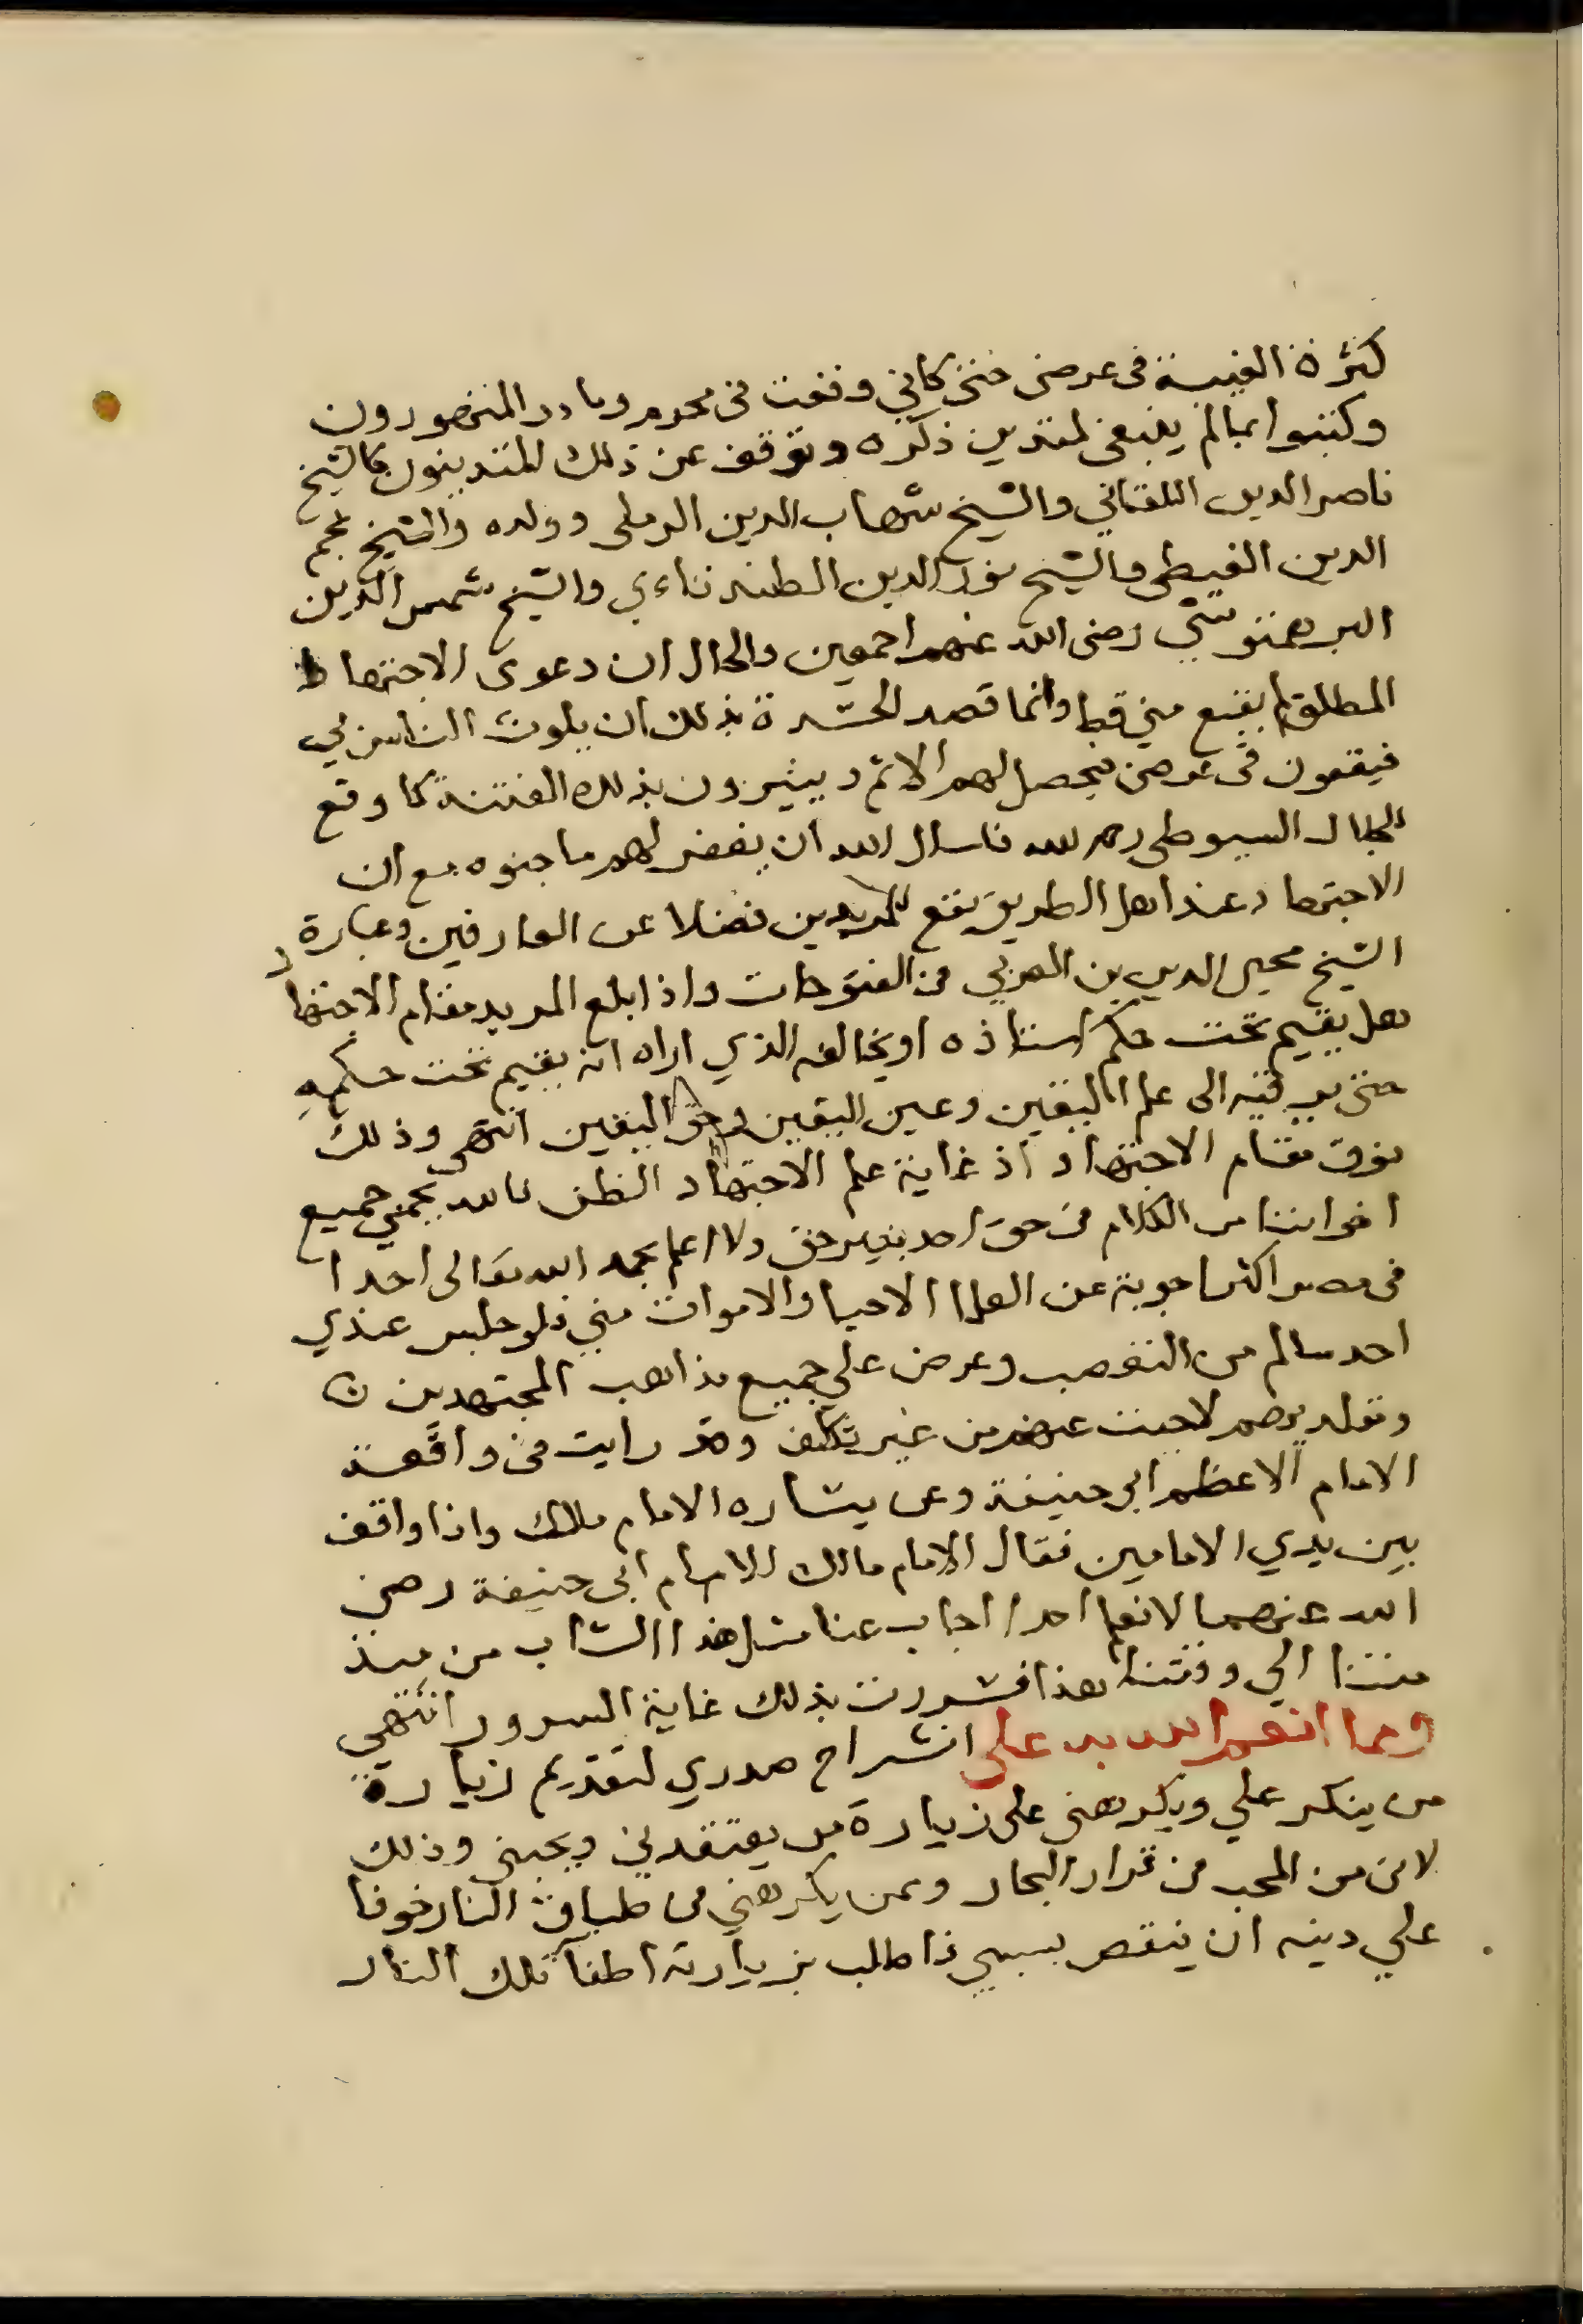 كثرة الغيبة في عرضي حتى كاني وقعت في محرم وبادر المتهورون
وكتبوا بما لم ينبغي لمتدين ذكره وتوقف عن ذلك المتدينون كالشيخ
ناصر الدين اللقاني والشيخ شهاب الدين الرملي وولده والشيخ نجم
الدين الغيطي والشيخ نور الدين الطندتاءي والشيخ شمس الدين
البرهمتوشي رضي الله عنهم اجمعين والحال ان دعوى الاجتهاد
المطلق لم يقع مني قط وانما قصد الحسدة بذلك ان يلوث الناس بي
فيقعون في عرضي فيحصل لهم الاثم ويثيرون بذلك الفتنة كما وقع
للجلال السيوطي رحمه الله فاسال الله ان يغفر لهم ما جنوه مع ان
الاجتهاد عند اهل الطريق يقع للمريدين فضلا عن العارفين وعبارة
الشيخ محيي الدين بن العربي في الفتوحات واذا بلغ المريد مقام الاجتهاد
هل يقيم تحت حكم استاذه او يخالفه الذي اراه انه يقيم تحت حكمه
حتى يرقيه الى علم اليقين وعين اليقين وحق اليقين انتهى وذلك
فوق مقام الاجتهاد اذ غاية علم الاجتهاد الظن فالله يحمي جميع
اخواننا من الكلام في حق احد بغير حق ولا اعلم بحمد الله تعالى احدا
في مصر اكثر اجوبة عن العلما الاحيا والاموات مني فلو جلس عندي
احد سالم من التعصب وعرض علي جميع مذاهب المجتهدين
ومقلديهم لاجبت عنهم من غير تكلف وقد رايت في واقعة
الامام الاعظم ابي حنيفة وعن يساره الامام مالك واذا واقف
بين يدي الامامين فقال الامام مالك للامام ابي حنيفة رضي
الله عنهما لا نعلم احدا اجاب عنا مثل هذا الشاب من منذ
متنا الي وقتنا هذا فسررت بذلك غاية السرور انتهي
ومما انعم الله به علي انشراح صدري لتقديم زيارة
من ينكر علي ويكرهني على زيارة من يعتقدني ويحبني وذلك
لامن من المحب من قرار البحار وعمن يكرهني من طباق النار خوفا
علي دينه ان ينقص بسببي فاطلب بزيارته اطفآ تلك النار